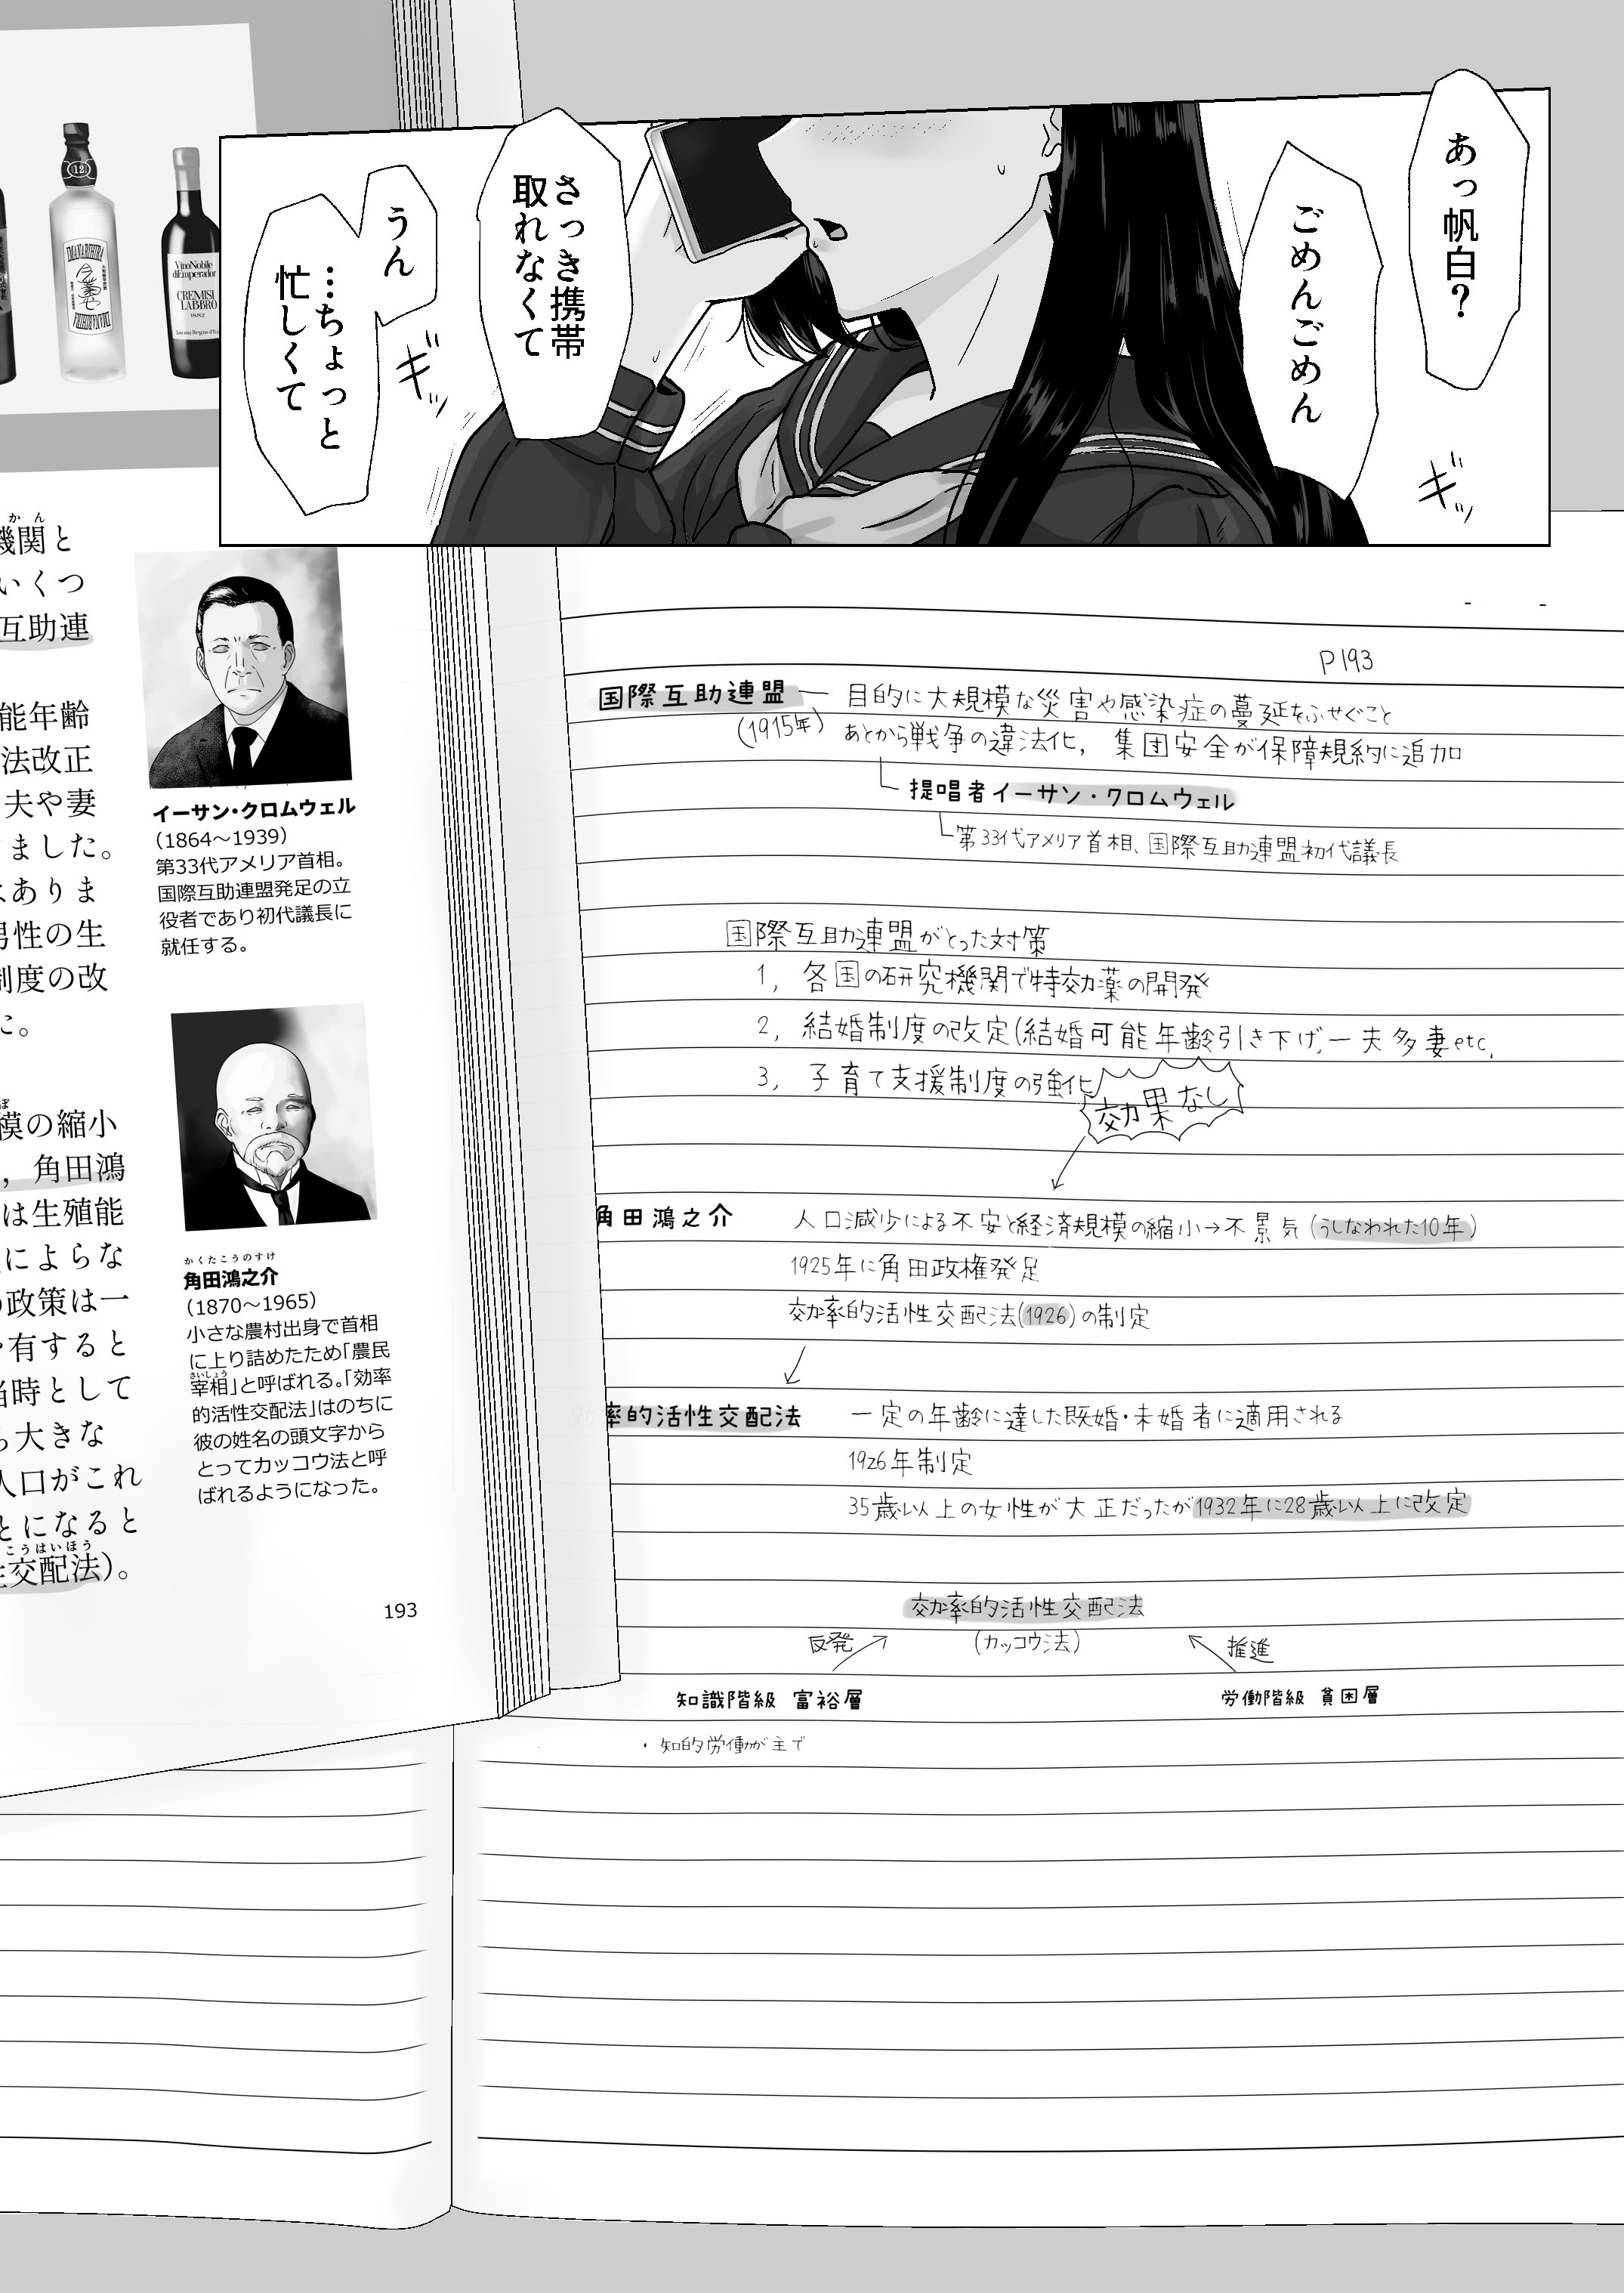 あっ帆白？
ごめんごめん
さっき携帯
取れなくて
うん
…ちょっと
忙しくて
ギッ
ギッ
12
IMANARIHIRA
VinoNobile
diEmperador
CREMISI
LABBRO
1882
かん
機関と
いくつ
互助連
能年齢
法改正
夫や妻
ました。
はありま
男性の生
制度の改
た。
ぼ
模の縮小
，角田鴻
は生殖能
によらな
の政策は一
有すると
当時として
も大きな
人口がこれ
とになると
こうはいほう
性交配法）。
イーサン・クロムウェル
（1864～1939）
第33代アメリア首相。
国際互助連盟発足の立
役者であり初代議長に
就任する。
かくたこうのすけ
角田鴻之介
（1870～1965）
小さな農村出身で首相
に上り詰めたため「農民
さいしょう
宰相」と呼ばれる。「効率
的活性交配法」はのちに
彼の姓名の頭文字から
とってカッコウ法と呼
ばれるようになった。
193
P193
国際互助連盟 — 目的に大規模な災害や感染症の蔓延をふせぐこと
(1915年) あとから戦争の違法化, 集団安全が保障規約に追加
提唱者イーサン・クロムウェル
第33代アメリア首相、国際互助連盟初代議長
国際互助連盟がとった対策
1, 各国の研究機関で特効薬の開発
2, 結婚制度の改定(結婚可能年齢引き下げ,一夫多妻etc,
3, 子育て支援制度の強化
効果なし
角田鴻之介 人口減少による不安と経済規模の縮小→不景気(うしなわれた10年)
1925年に角田政権発足
効率的活性交配法(1926)の制定
効率的活性交配法 一定の年齢に達した既婚・未婚者に適用される
1926年制定
35歳以上の女性が大正だったが1932年に28歳以上に改定
効率的活性交配法
反発 (カッコウ法) 推進
知識階級 富裕層 労働階級 貧困層
・知的労働が主で